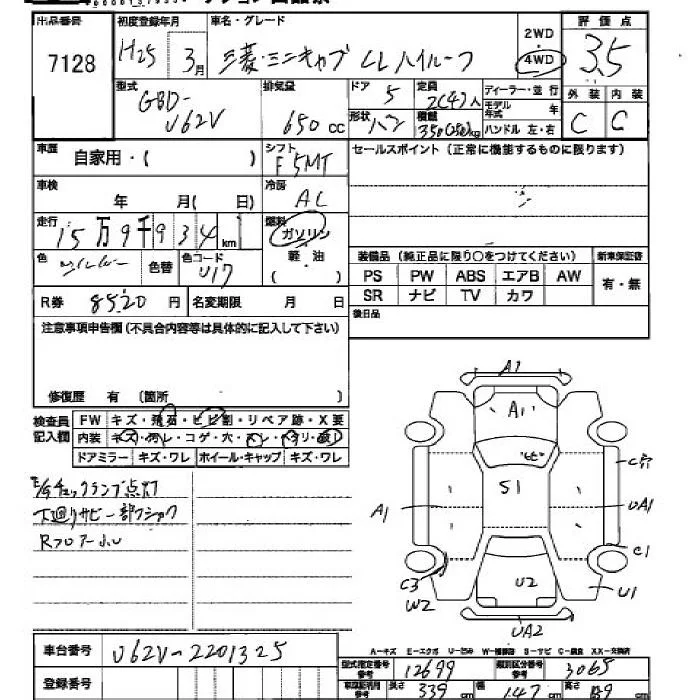 出品番号 初度登録年月 車名・グレード 2WD 評価点
7128 H25 3月 三菱・ミニキャブ CLハイルーフ 4WD 3.5
型式 排気量 ドア 定員 ディーラー・並行 外装 内装
GBD- 5 2(4)人 モデル年式 年
U62V 650 cc 形状 バン 積載 350(250)kg ハンドル 左・右 C C
車歴 自家用・( ) シフト F5MT セールスポイント (正常に機能するものに限ります)
車検 年 月( 日) 冷房 AC
走行 15万9千934km 燃料 ガソリン
色 シルバー 色替 色コード U17 軽・油 ( ) 装備品 (純正品に限り○をつけてください) 新車保証書
PS PW ABS エアB AW 有・無
R券 8520 円 名変期限 月 日 SR ナビ TV カワ
注意事項申告欄 (不具合内容等は具体的に記入して下さい) 後日品
修復歴 有 (箇所 )
検査員記入欄 FW キズ・飛石・ヒビ割・リペア跡・X要
内装 キズ・ワレ・コゲ・穴・スレ・ヘタリ・
ドアミラー キズ・ワレ ホイール・キャップ キズ・ワレ
E/Gチェックランプ点灯
下廻りサビ一部フショク
Rフロアー小U
A1
A1
ヒビ
S1
C穴
A1
UA1
C1
C3
W2
U2
U1
UA2
A-キズ E-エクボ U-凹み W-補修跡 S-サビ C-腐食 XX-交換済
車台番号 U62V-2201325 型式指定番号 参考 12699 類別区分番号 参考 3065
登録番号 参考 長さ 339 cm 幅 147 cm 高さ cm